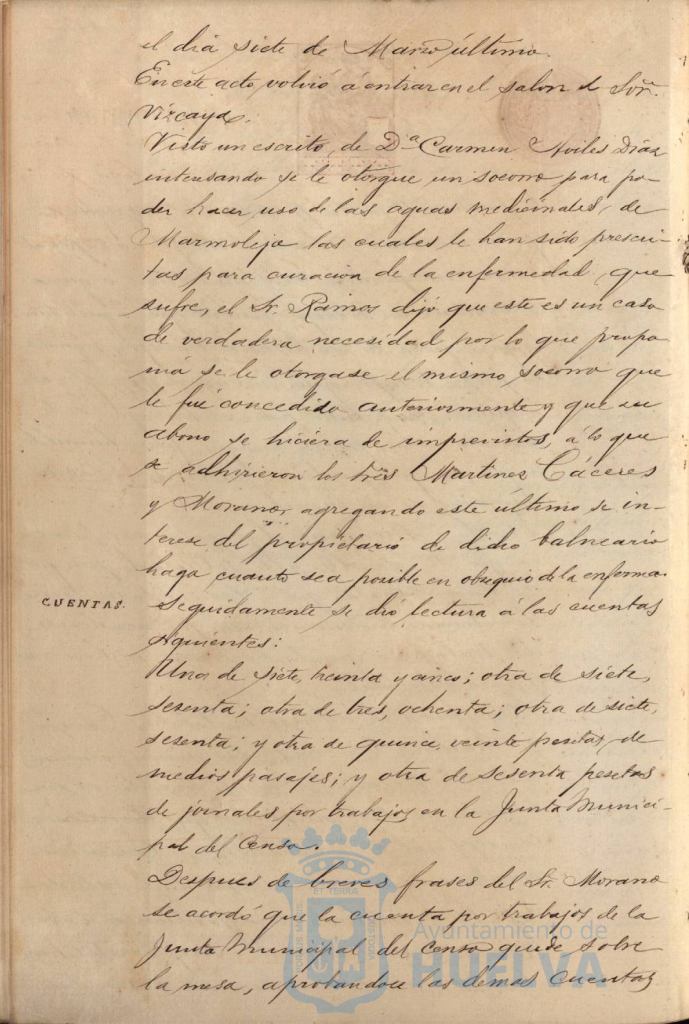 el dia siete de Marzo último.
En este acto volvió á entrar en el salon el Sor.
Vizcaya.
Visto un escrito, de D.a Carmen Aviles Diaz
interesando se le otorgue un socorro para po-
der hacer uso de las aguas medicinales, de
Marmolejo las cuales le han sido prescri-
tas para curacion de la enfermedad, que
sufre, el Sr. Ramos dijó que este es un caso
de verdadera necesidad por lo que propo-
niá se le otorgase el mismo socorro que
le fué concedido anteriormente y que su
abono se hiciera de imprevistos, á lo que
se adhirieron los Sres Martinez Cáceres
y Morano, agregando este último se in-
terese del propietario de dicho balneario
haga cuanto sea posible en obsequio de la enferma.
CUENTAS. Seguidamente se dió lectura á las cuentas
siguientes:
Una de siete, treinta y cinco; otra de siete,
sesenta; otra de tres, ochenta; otra de siete,
sesenta; y otra de quince, veinte pesetas, de
medios pasajes; y otra de sesenta pesetas
de jornales por trabajos en la Junta Munici-
pal del Censo.
Despues de breves frases del Sr. Morano
se acordó que la cuenta por trabajos de la
Junta Municipal del censo quede sobre
la mesa, aprobandoce las demas cuentas
Ayuntamiento de
HUELVA